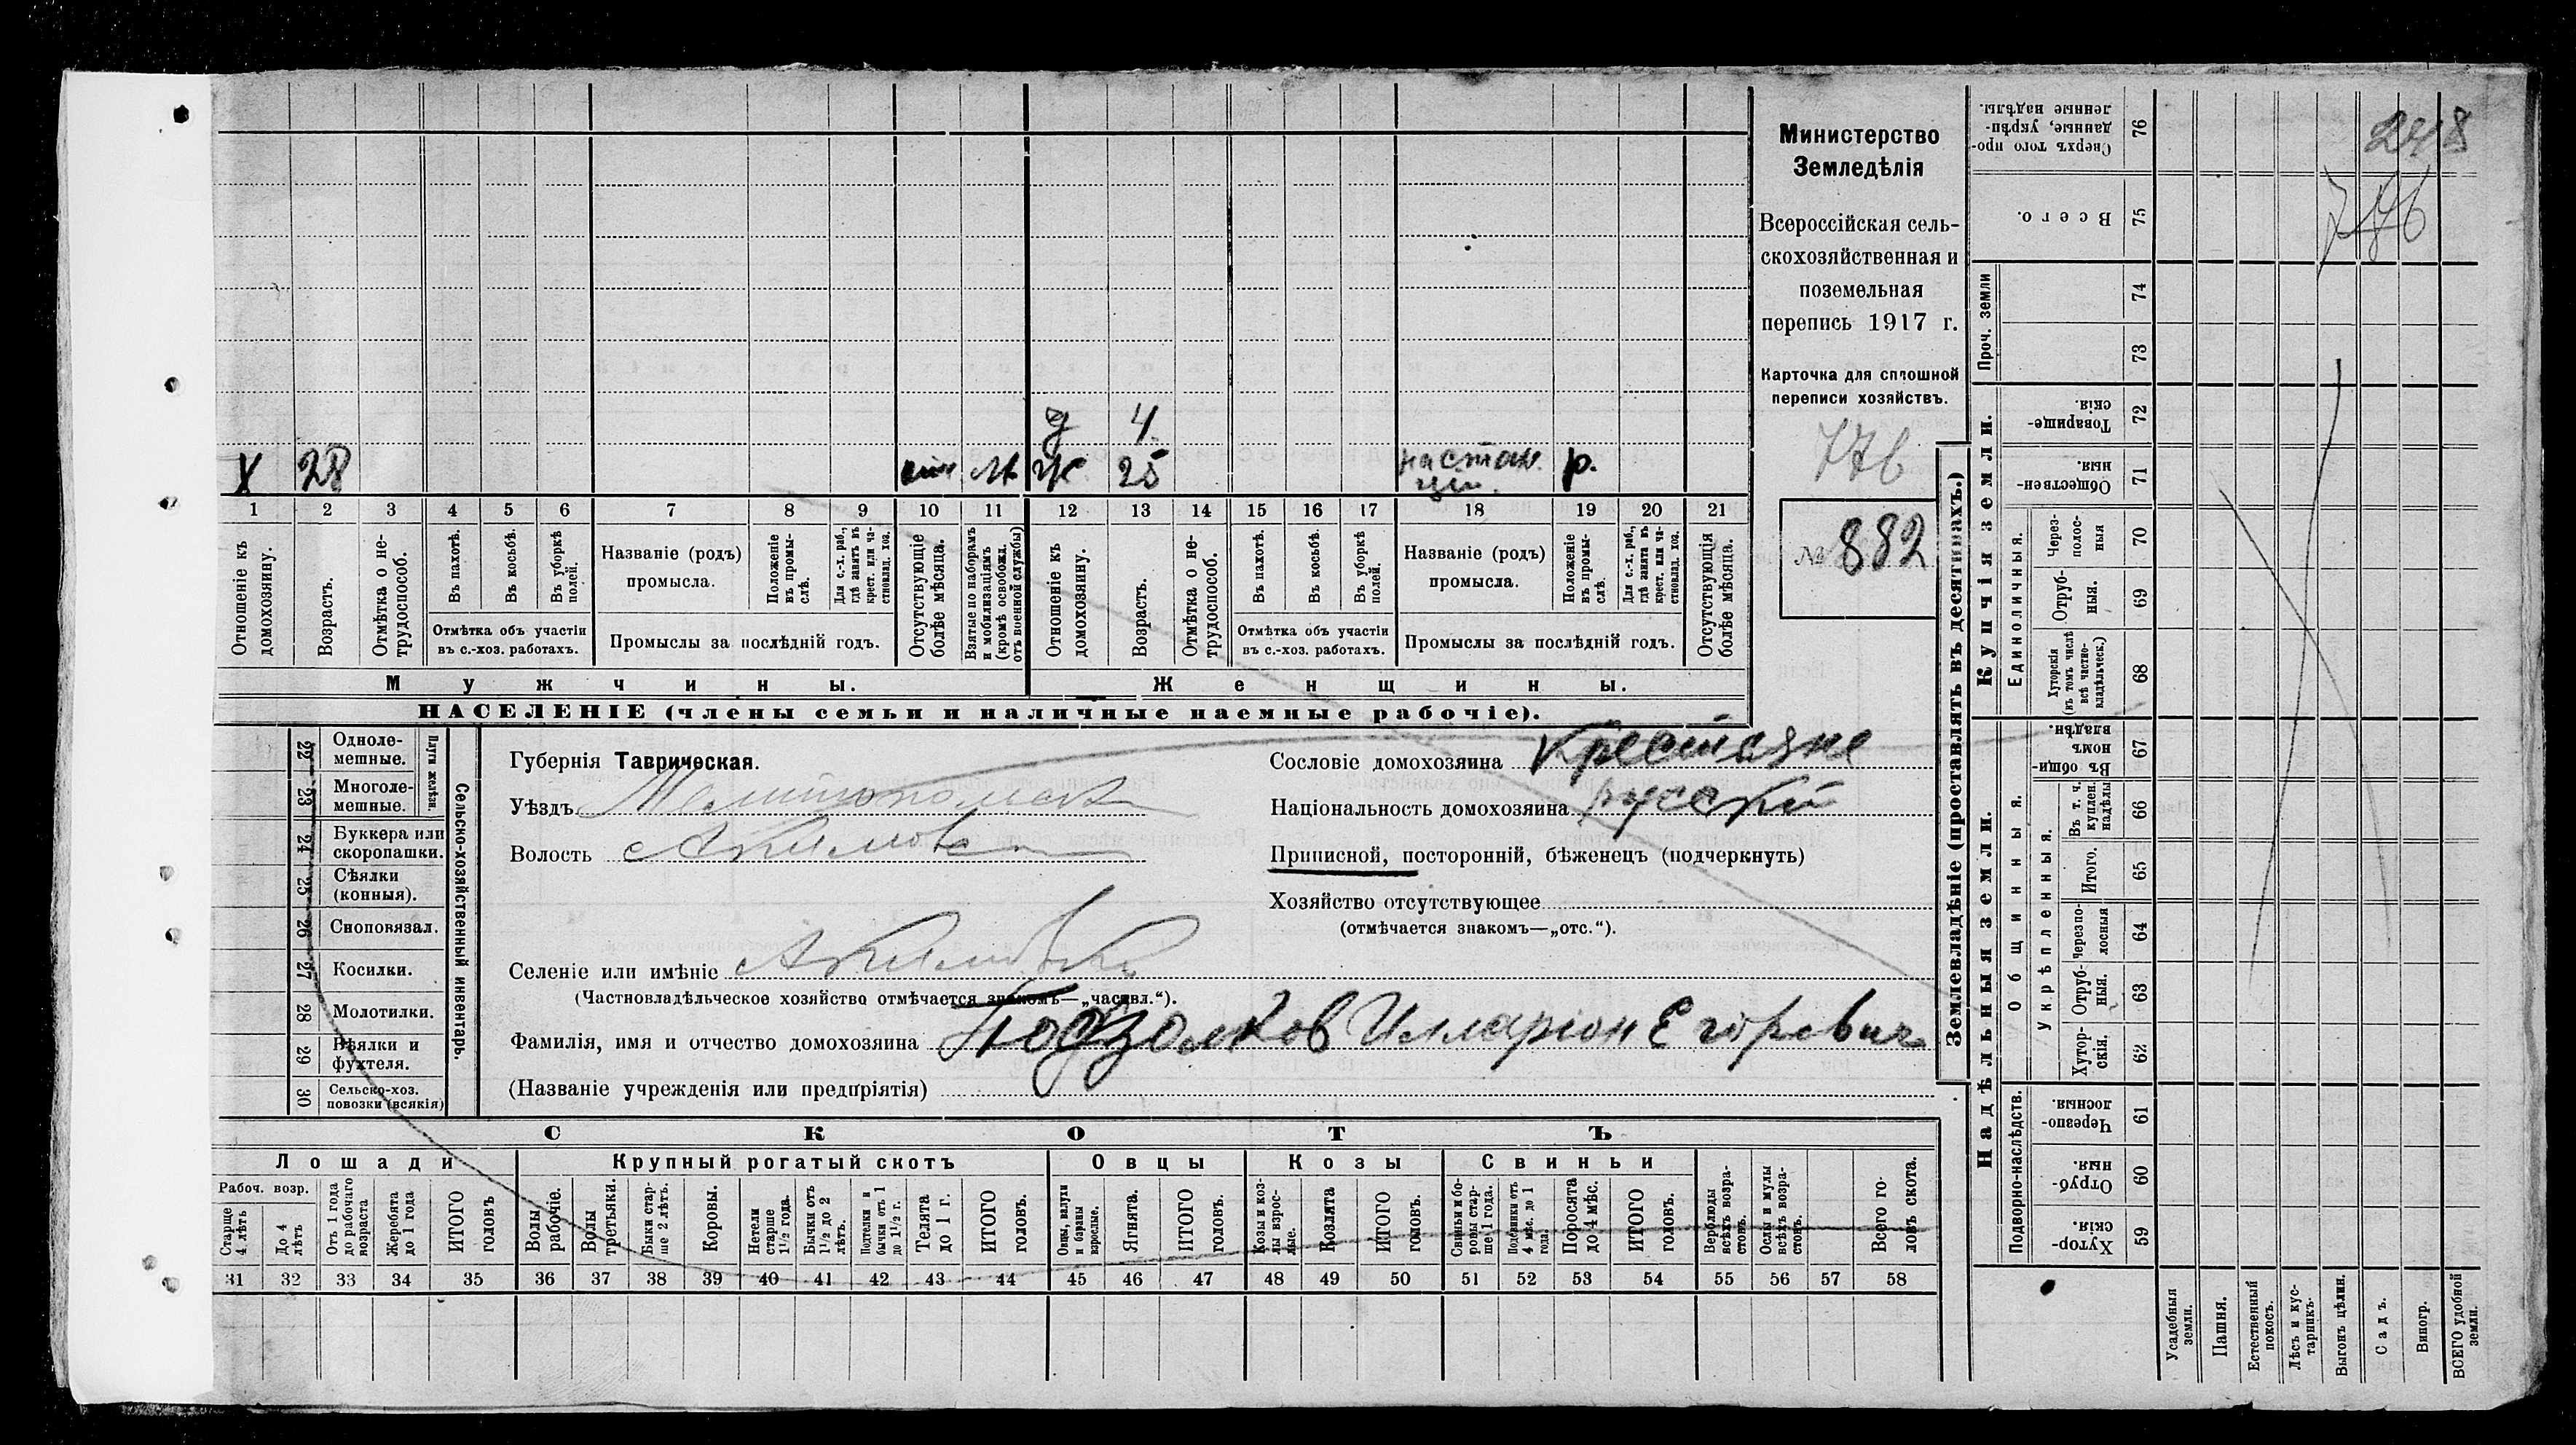 Министерство
Земледѣлія
Всероссійская сель-
скохозяйственная и
поземельная
перепись 1917 г.
Карточка для сплошной
переписи хозяйствъ.
776
№ 882
д 4.
Х 28 М Ж 25 р.
1 2 3 4 5 6 7 8 9 10 11 12 13 14 15 16 17 18 19 20 21
Отношеніе къ домохозяину.
Возрастъ.
Отмѣтка о не-трудоспособ.
Въ пахотѣ.
Въ косьбѣ.
Въ уборкѣ полей.
Отмѣтка объ участіи
въ с.-хоз. работахъ.
Названіе (родъ)
промысла.
Положеніе въ промы-слѣ.
Для с.-х. раб., гдѣ занятъ въ крест. или ча-стновлад. хоз.
Промыслы за послѣдній годъ.
Отсутствующіе болѣе мѣсяца.
Взятые по наборамъ и мобилизаціямъ (кромѣ освобожд. отъ военной службы)
Отношеніе къ домохозяину.
Возрастъ.
Отмѣтка о не-трудоспособ.
Въ пахотѣ.
Въ косьбѣ.
Въ уборкѣ полей.
Отмѣтка объ участіи
въ с.-хоз. работахъ.
Названіе (родъ)
промысла.
Положеніе въ промы-слѣ.
Для с.-х. раб., гдѣ занята въ крест. или ча-стновлад. хоз.
Промыслы за послѣдній годъ.
Отсутствующія болѣе мѣсяца.
Мужчины.
Женщины.
НАСЕЛЕНІЕ (члены семьи и наличные наемные рабочіе).
Сельско-хозяйственный инвентарь.
Плуги желѣзн.
22 Одноле-мешные.
23 Многоле-мешные.
24 Буккера или скоропашки.
25 Сѣялки (конныя).
26 Сноповязал.
27 Косилки.
28 Молотилки.
29 Вѣялки и фухтеля.
30 Сельско-хоз. повозки (всякія)
Губернія Таврическая.
Уѣздъ Мелитопольскій
Волость Акимовск
Селеніе или имѣніе Акимовка
(Частновладѣльческое хозяйство отмѣчается знакомъ—„частвл.“).
Фамилія, имя и отчество домохозяина Подзолков Илларіон Егоревич
(Названіе учрежденія или предпріятія)
Сословіе домохозяина Крестьяне
Національность домохозяина русскій
Приписной, посторонній, бѣженец (подчеркнуть)
Хозяйство отсутствующее
(отмѣчается знакомъ—„отс.“).
СКОТЪ
Лошади
Крупный рогатый скотъ
Овцы
Козы
Свиньи
Рабоч. возр.
Старше 4 лѣтъ
До 4 лѣтъ
Отъ 1 года до рабочаго возраста
Жеребята до 1 года
ИТОГО головъ
Волы рабочіе.
Волы третьяки.
Быки стар-ше 2 лѣтъ.
Коровы.
Нетели старше 1½ года.
Бычки отъ 1½ до 2 лѣтъ.
Подтелки и бычки отъ 1 до 1½ г.
Телята до 1 г.
ИТОГО головъ.
Овцы, валухи и бараны взрослые.
Ягнята.
ИТОГО головъ.
Козы и коз-лы взрос-лые.
Козлята
ИТОГО головъ.
Свиньи и бо-ровы стар-ше 1 года.
Подсвинки отъ 4 мѣс. до 1 года.
Поросята до 4 мѣс.
ИТОГО головъ.
Верблюды всѣхъ возра-стовъ.
Ослы и мулы всѣхъ возра-стовъ.
Всего го-ловъ скота.
31 32 33 34 35 36 37 38 39 40 41 42 43 44 45 46 47 48 49 50 51 52 53 54 55 56 57 58
Землевладѣніе (проставлять въ десятинахъ.)
Надѣльныя земли.
Купчія земли.
Проч. земли
Подворно-наслѣдств.
Общинныя.
Укрѣпленныя.
Единоличныя.
Сверхъ того про-данные, укрѣп-ленные надѣлы. 76
Всего. 75
74
73
Товарище-скія. 72
Обществен-ныя. 71
Через-полос-ныя 70
Отруб-ныя. 69
Хуторскія (въ томъ числѣ всѣ частно-владѣльческ.) 68
Въ общи-номъ владѣн. 67
Въ т. ч. куплен. надѣлы 66
Итого. 65
Черезпо-лосныя 64
Отруб-ныя. 63
Хутор-скія. 62
Черезпо-лосныя. 61
Отруб-ныя. 60
Хутор-скія 59
Усадебныя земли.
Пашня.
Естественный покосъ.
Лѣсъ и кус-тарникъ.
Выгонъ цѣлин.
Садъ.
Виногр.
ВСЕГО удобной земли.